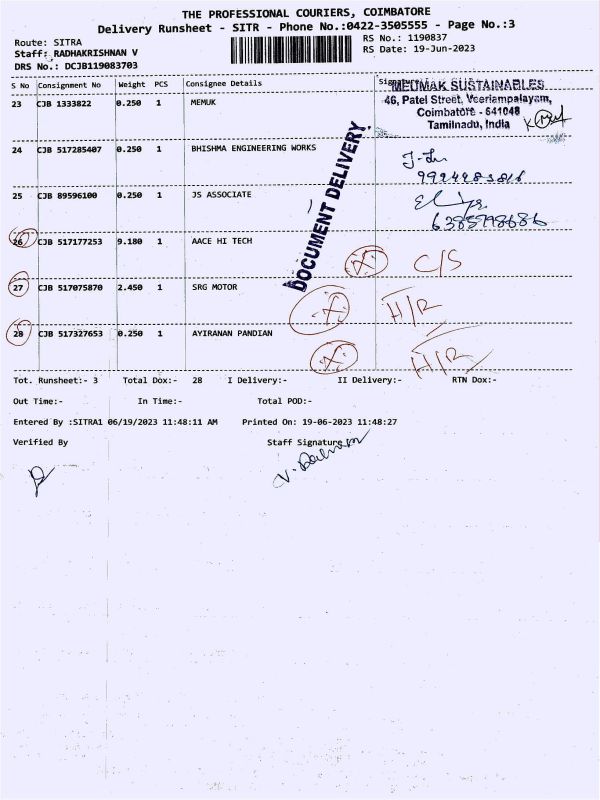 THE PROFESSIONAL COURIERS, COIMBATORE
Delivery Runsheet - SITR - Phone No.:0422-3505555 - Page No.:3
Route: SITRA
RS No.: 1190837
Staff: RADHAKRISHNAN V
RS Date: 19-Jun-2023
DRS No.: DCJB119083703
S No Consignment No Weight PCS Consignee Details Signature
MEUMAK SUSTAINABLES
23 CJB 1333822 0.250 1 MEMUK
46, Patel Street, Veeriampalayam,
Coimbatore - 641048
Tamilnadu, India
24 CJB 517285407 0.250 1 BHISHMA ENGINEERING WORKS
25 CJB 89596100 0.250 1 JS ASSOCIATE
6385798686
DOCUMENT DELIVERY
26 CJB 517177253 9.180 1 AACE HI TECH
C/S
27 CJB 517075870 2.450 1 SRG MOTOR
H/R
28 CJB 517327653 0.250 1 AYIRANAN PANDIAN
H/R
Tot. Runsheet:- 3 Total Dox:- 28 I Delivery:- II Delivery:- RTN Dox:-
Out Time:- In Time:- Total POD:-
Entered By :SITRA1 06/19/2023 11:48:11 AM Printed On: 19-06-2023 11:48:27
Verified By Staff Signature